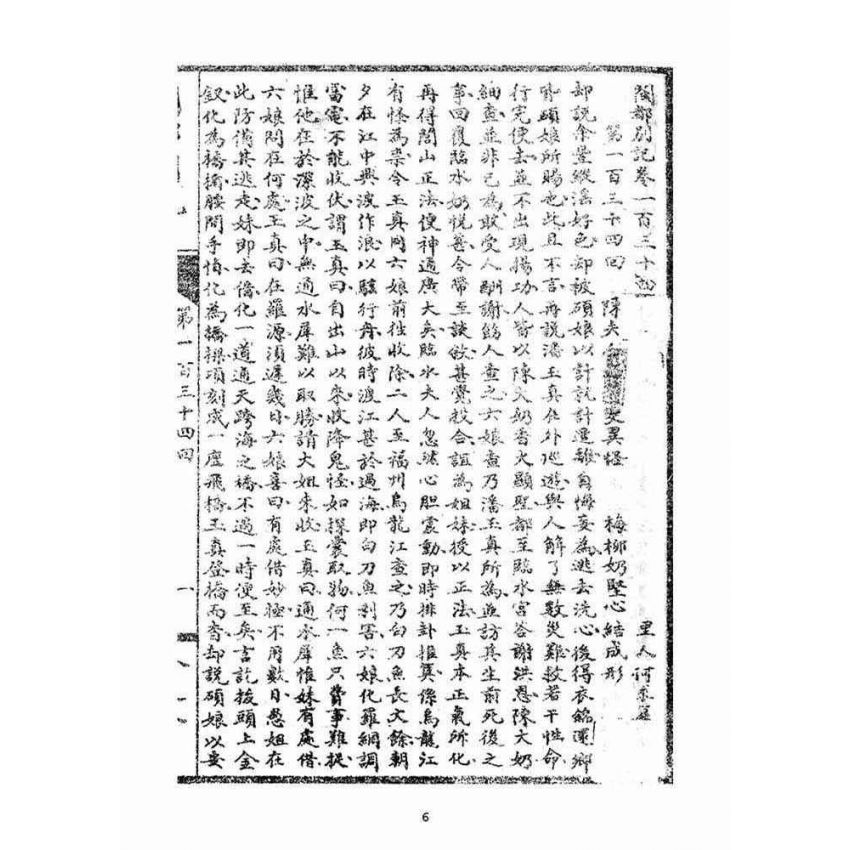 閩都別記卷一百三十四
里人何求纂
第一百三十四回 陳夫 異怪 梅柳奶堅心結成形
却說余曇縱淫好色却被碩娘以計就計遷離自悔妄為逃去洗心後得衣錦還鄉
皆碩娘所賜也此且不言再說潘玉真在外巡遊與人解了無數災難救若干性命
行完便去並不出現揚功人皆以陳大奶香火顯聖都至臨水宮答謝洪恩陳大奶
細查並非己為敢受人酬謝飭人查之六娘查乃潘玉真所為並訪真生前死後之
事回覆臨水奶悅甚令帶至談敘甚覺投合誼為姐妹授以正法玉真本正氣所化
再得閭山正法便神通廣大矣臨水夫人忽然心胆震動即時排卦推算係烏龍江
有怪為祟令玉真同六娘前往收除二人至福州烏龍江查之乃白刀魚長丈餘朝
夕在江中興波作浪以駭行舟彼時渡江甚於過海即白刀魚刣害六娘化羅網調
雷電不能收伏謂玉真曰自出山以來收降鬼怪如探囊取物何一魚只費事難捉
惟他在於深波之中無通水犀難以取勝請大姐來收玉真曰通水犀惟妹有處借
六娘問在何處玉真曰在羅源須遲幾日六娘喜曰有處借妙極不用數日愚姐在
此防備其逃走妹即去借化一道通天跨海之橋不過一時便至矣言訖拔頭上金
釵化為橋搊腰間手怕化為橋 項刻成一座飛橋玉真登橋而 却說碩娘以妄
第一百三十四回
6